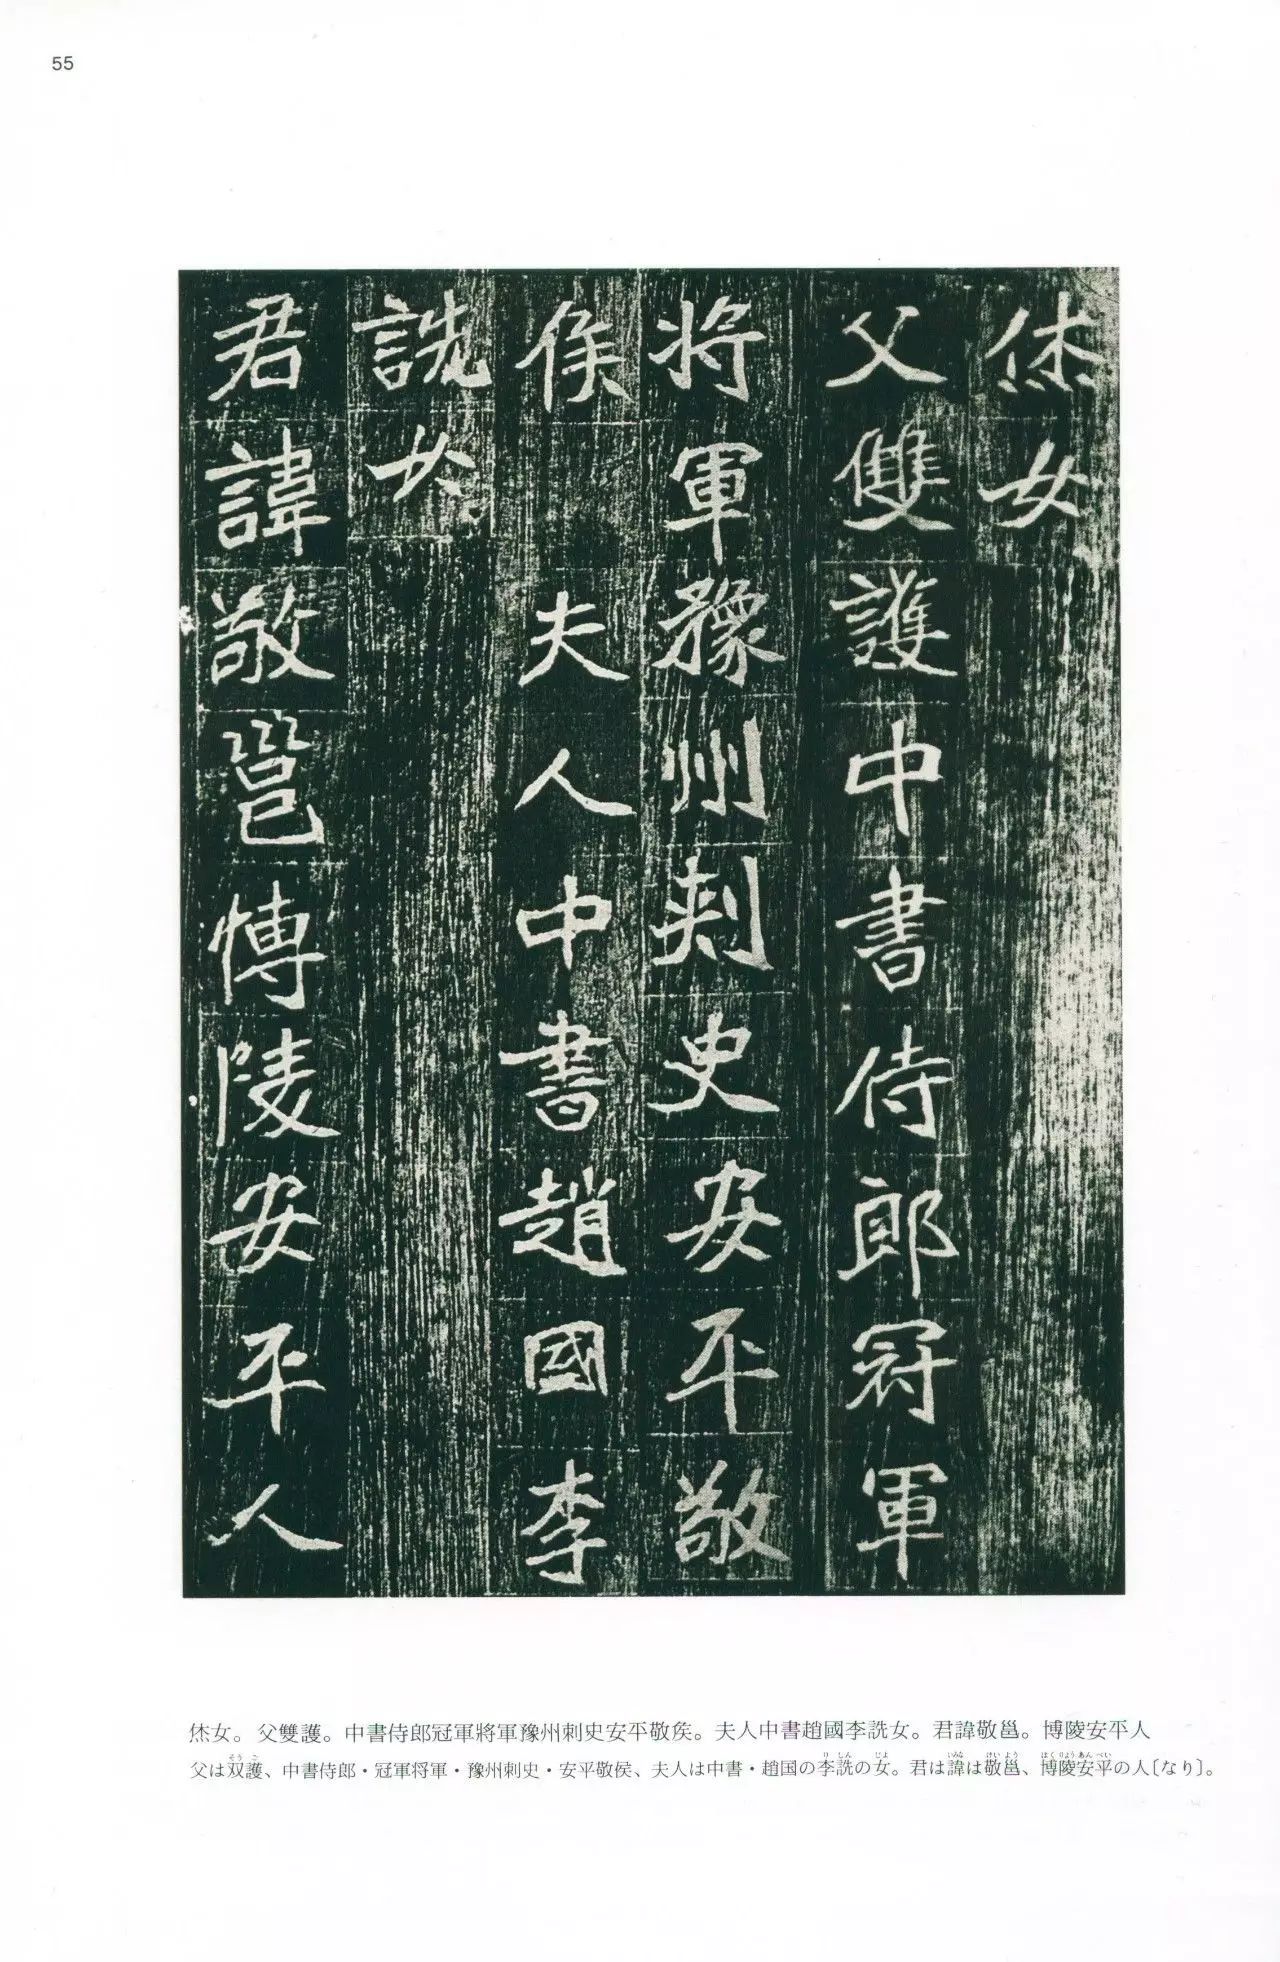 55
烋女
父雙護中書侍郎冠軍
將軍豫州刺史安平敬
侯夫人中書趙國李
詵女
君諱敬邕博陵安平人
烋女。父雙護。中書侍郎冠軍將軍豫州刺史安平敬矦。夫人中書趙國李詵女。君諱敬邕。博陵安平人
そうご りしん じょ いみな けいよう はくりょうあんぺい
父は双護、中書侍郎・冠軍将軍・豫州刺史・安平敬侯、夫人は中書・趙国の李詵の女。君は諱は敬邕、博陵安平の人〔なり〕。